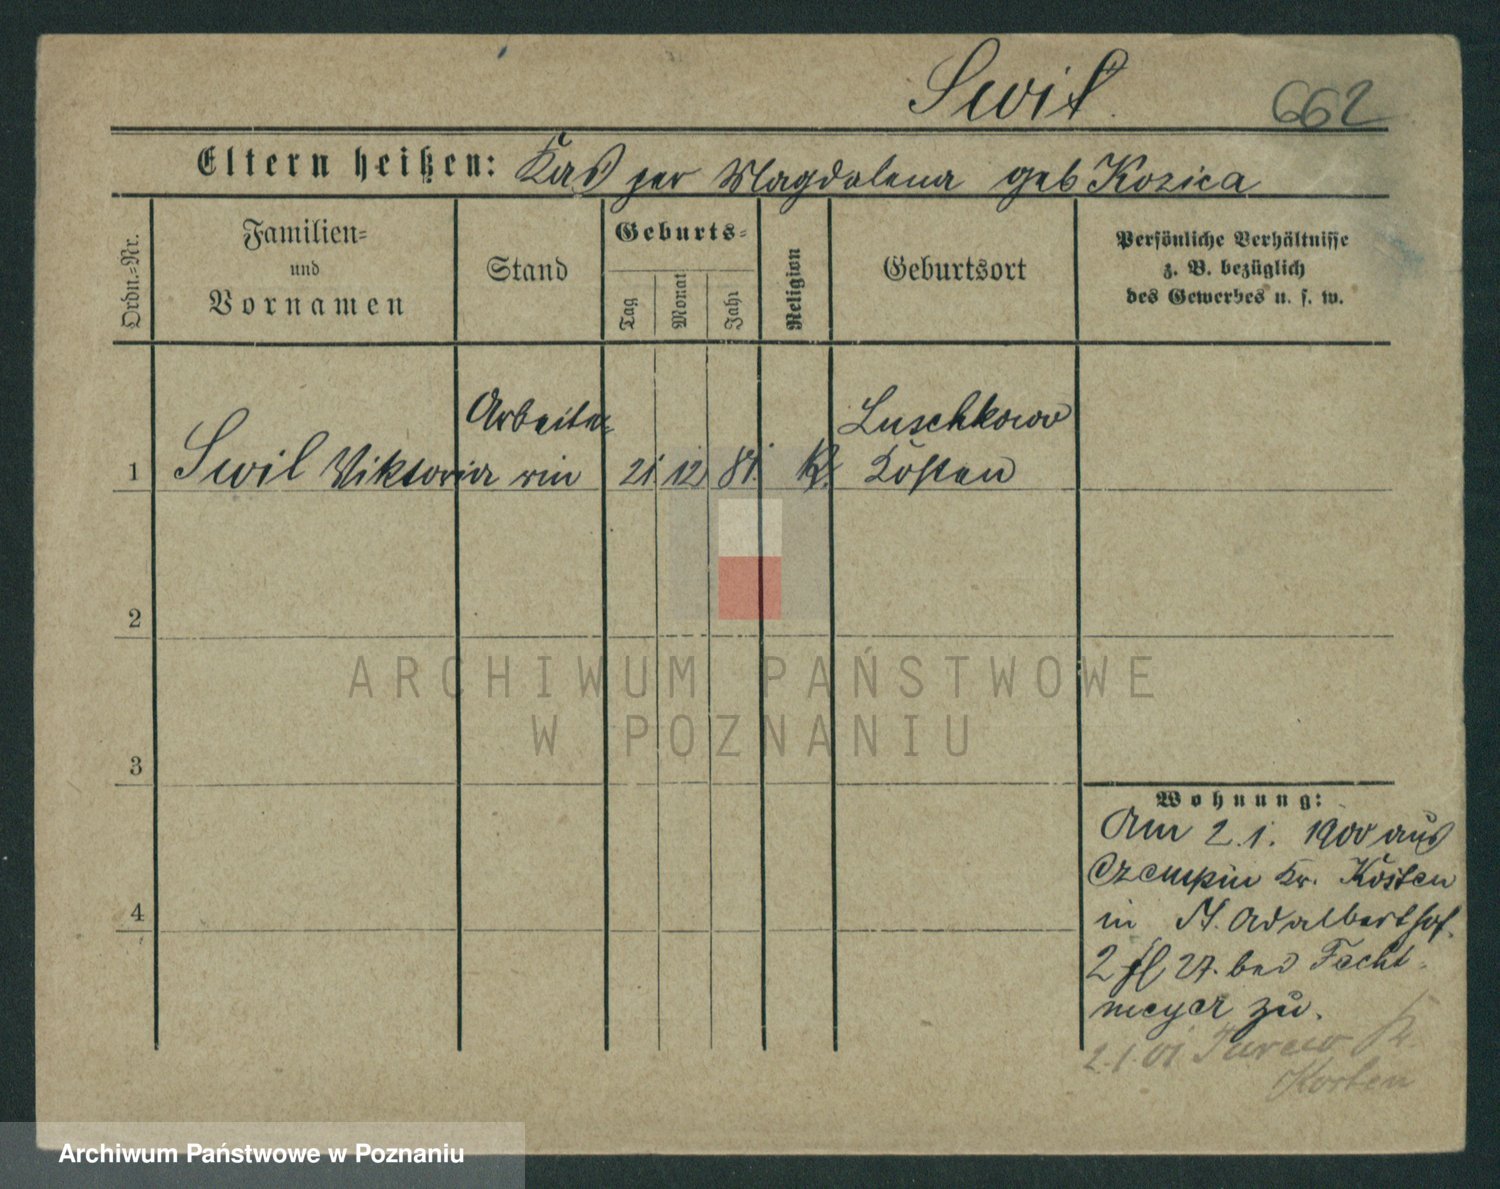 Swit. 662
Eltern heißen: Kasper Magdalena geb Kozica
Ordn.=Nr.
Familien=
und
Vornamen
Stand
Geburts=
Tag
Monat
Jahr
Religion
Geburtsort
Persönliche Verhältnisse
z. B. bezüglich
des Gewerbes u. s. w.
Arbeite= Luschkowo
1 Swil Viktoria rin 21. 12. 81. K. Kosten
2
3
4
ARCHIWUM PAŃSTWOWE
W POZNANIU
Wohnung:
Am 2.1. 1900 aus
Czempin Kr. Kosten
in St. Adalberthof.
2 27. bei Facht
meyer zu.
2.1.01 Turew K.
Kosten
Archiwum Państwowe w Poznaniu